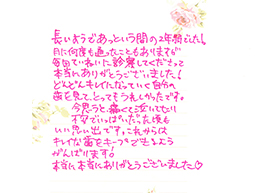 長いようであっという間の2年間でした！
月に何度も通ったこともありますが
毎回ていねいに診療してくださって
本当にありがとうございました！
どんどんキレイになっていく自分の
歯を見て、とってもうれしかったです。
今思うと、痛くて泣いてたり
不安でいっぱいだった頃も
いい思い出です。これからは
キレイな歯をキープできるよう
がんばります！
本当に本当にありがとうございました♡